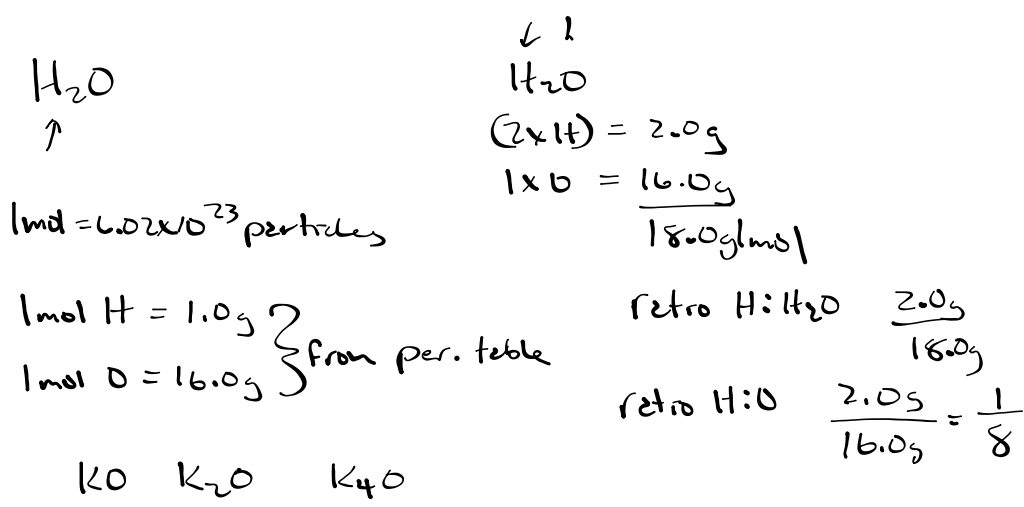 H₂O
1mol = 6.02x10²³ particles
1mol H = 1.0g
1mol O = 16.0g
} from per. table
KO K₂O K₄O
H₂O
(2xH) = 2.0g
1xO = 16.0g
18.0g/mol
ratio H:H₂O 2.0g/18.0g
ratio H:O 2.0g/16.0g = 1/8